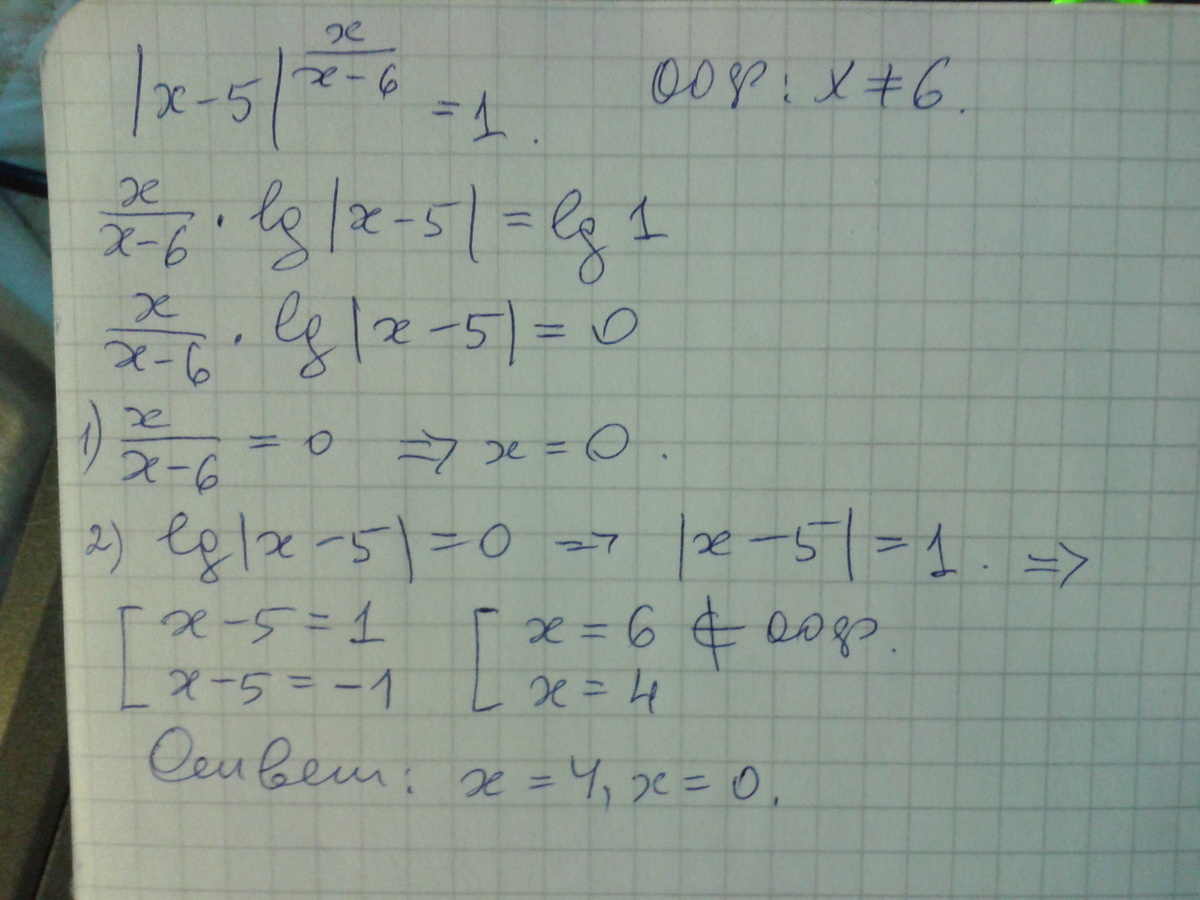 |x-5|^(x/(x-6)) = 1. ООФ: x ≠ 6.
x/(x-6) · lg|x-5| = lg 1
x/(x-6) · lg|x-5| = 0
1) x/(x-6) = 0 ⇒ x = 0.
2) lg|x-5| = 0 ⇒ |x-5| = 1. ⇒
[ x-5 = 1 [ x = 6 ⊄ ООФ.
[ x-5 = -1 [ x = 4
Ответ: x = 4, x = 0.